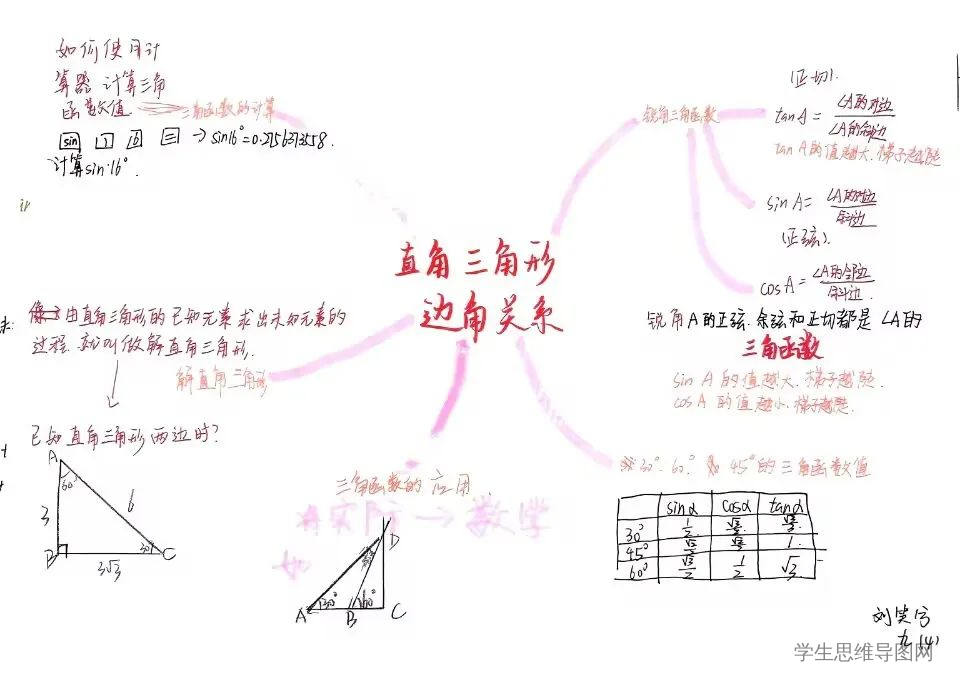 如何使用计
算器 计算三角
函数值
三角函数的计算
sin 1 6 = → sin16°=0.2756373558.
计算sin16°
(正切).
锐角三角函数
tanA = ∠A的对边/∠A的邻边
tanA的值越大.梯子越陡
sin A = ∠A的对边/斜边
(正弦).
cosA = ∠A的邻边/斜边
锐角A的正弦.余弦和正切都是∠A的
三角函数
sin A的值越大.梯子越陡.
cos A的值越小.梯子越陡.
直角三角形
边角关系
由直角三角形的已知元素求出未知元素的
过程.就叫做解直角三角形.
解直角三角形
已知直角三角形两边时?
A
60°
3
6
B
30°
C
3√3
三角函数的应用
实际→数学
如
D
A
30°
B
60°
C
30°.60°.45°的三角函数值
sinα cosα tanα
30° 1/2
45° 1.
60° √3/2 1/2 √3
九(4)
学生思维导图网